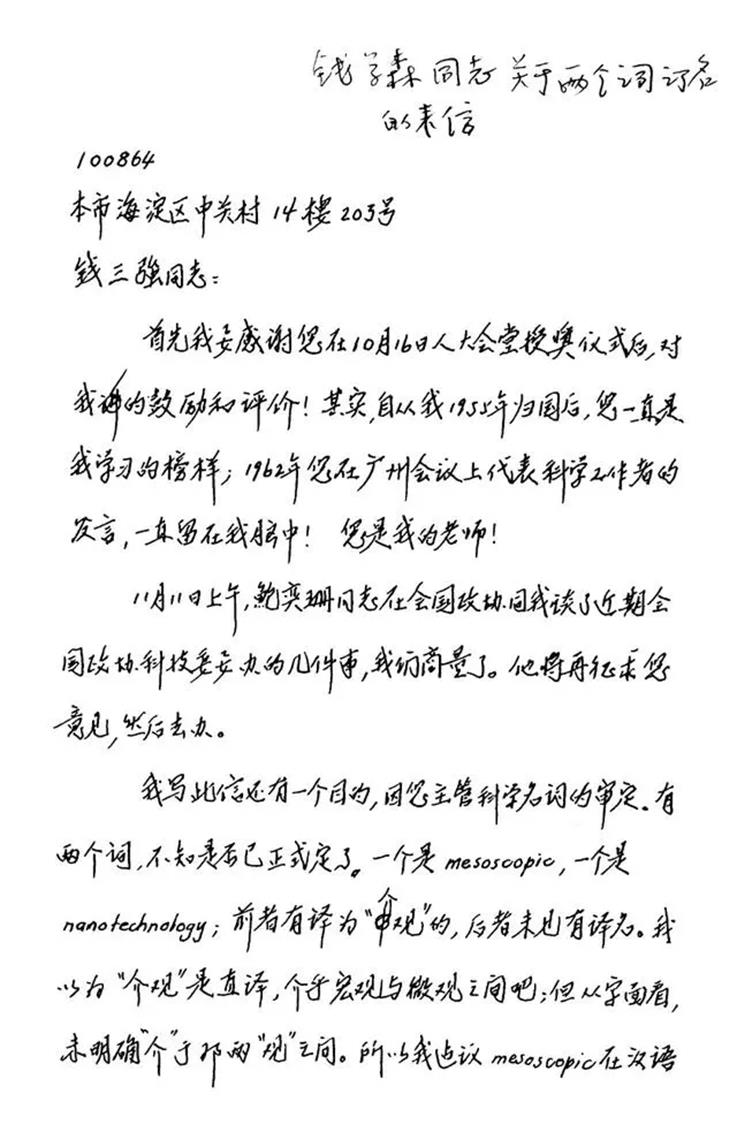 钱学森同志关于两个词订名
的来信
100864
本市海淀区中关村14楼203号
钱三强同志:
首先我要感谢您在10月16日人大会堂授奖仪式后,对
我的鼓励和评价!其实,自从我1955年归国后,您一直是
我学习的榜样;1962年您在广州会议上代表科学工作者的
发言,一直留在我脑中! 您是我的老师!
11月11日上午,鲍奕珊同志在全国政协同我谈了近期全
国政协科技委要办的几件事,我们商量了。他将再征求您
意见,然后去办。
我写此信还有一个目的,因您主管科学名词的审定。有
两个词,不知是否已正式定了。一个是mesoscopic,一个是
nanotechnology;前者有译为“介观”的,后者未也有译名。我
以为“介观”是直译,介乎宏观与微观之间吧;但从字面看,
未明确“介”于那两“观”之间。所以我建议mesoscopic在汉语